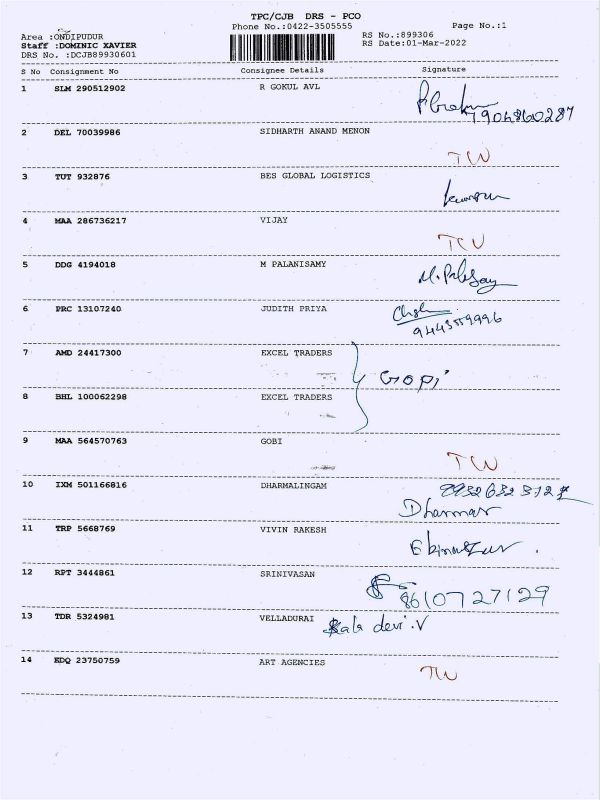 TPC/CJB DRS - PCO
Phone No.:0422-3505555
Page No.:1
Area :ONDIPUDUR
RS No.:899306
Staff :DOMINIC XAVIER
RS Date:01-Mar-2022
DRS No. :DCJB89930601
S No Consignment No Consignee Details Signature
1 SLM 290512902 R GOKUL AVL
7904860287
2 DEL 70039986 SIDHARTH ANAND MENON
3 TUT 932876 BES GLOBAL LOGISTICS
4 MAA 286736217 VIJAY
5 DDG 4194018 M PALANISAMY
6 PRC 13107240 JUDITH PRIYA
7 AMD 24417300 EXCEL TRADERS
Gopi
8 BHL 100062298 EXCEL TRADERS
9 MAA 564570763 GOBI
10 IXM 501166816 DHARMALINGAM
Dharmar
11 TRP 5668769 VIVIN RAKESH
12 RPT 3444861 SRINIVASAN
8610727129
13 TDR 5324981 VELLADURAI Kala devi.V
14 KDQ 23750759 ART AGENCIES